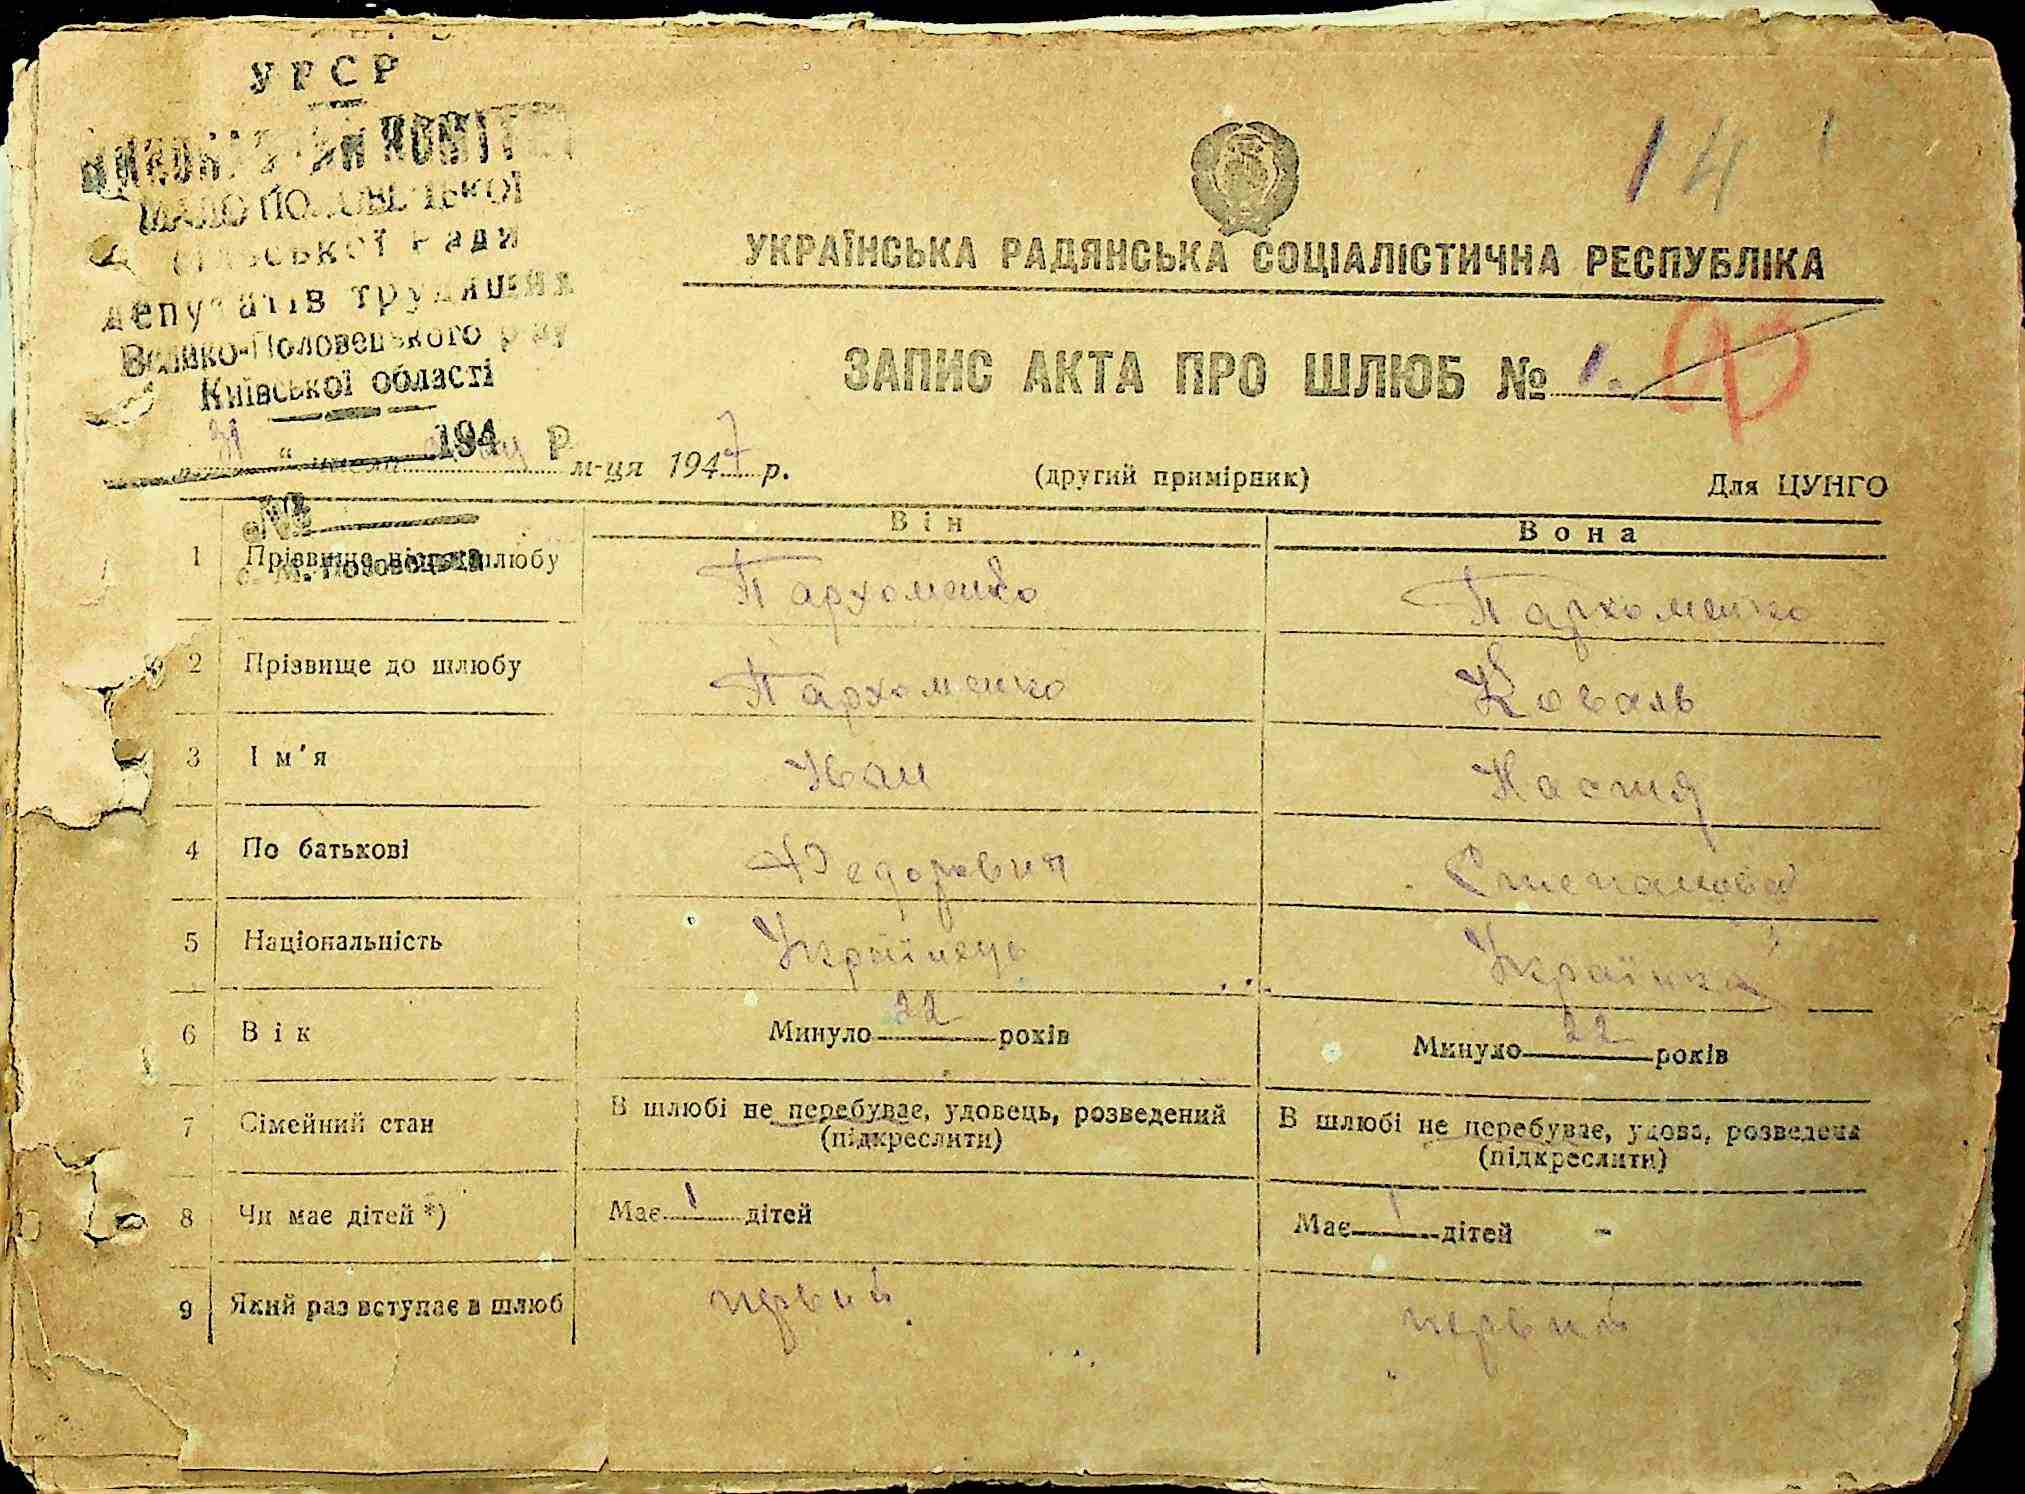 УРСР
ВИКОНАВЧИЙ КОМІТЕТ
МАЛО ПОЛОВЕЦЬКОЇ
сільської Ради
депутатів трудящих
Велико-Половецького р-ну
Київської області
194 р.
№
с. М. Половецьке
14
УКРАЇНСЬКА РАДЯНСЬКА СОЦІАЛІСТИЧНА РЕСПУБЛІКА
ЗАПИС АКТА ПРО ШЛЮБ № 1.
" числа м-ця 1947 р.
(другий примірник)
Для ЦУНГО
Він Вона
1 Прізвище після шлюбу Пархоменко Пархоменко
2 Прізвище до шлюбу Пархоменко Коваль
3 Ім'я Иван Настя
4 По батькові Федорович Степанова
5 Національність Українець Українка
6 Вік Минуло 22 років Минуло 22 років
7 Сімейний стан В шлюбі не перебуває, удовець, розведений В шлюбі не перебуває, удова, розведена
(підкреслити) (підкреслити)
8 Чи має дітей *) Має 1 дітей Має 1 дітей -
9 Який раз вступає в шлюб первий первий